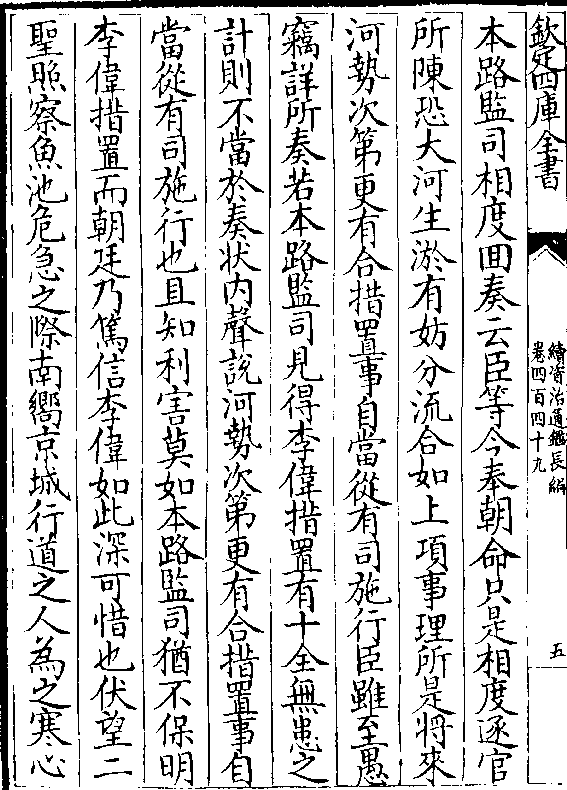 欽定四庫全書
續資治通鑑長編
卷四百四十九
五
本路監司相度回奏云臣等今奉朝命只是相度逐官
所陳恐大河生淤有妨分流合如上項事理所是將來
河勢次第更有合措置事自當從有司施行臣雖至愚
竊詳所奏若本路監司見得李偉措置有十全無患之
計則不當於奏狀內聲說河勢次第更有合措置事自
當從有司施行也且知利害莫如本路監司猶不保明
李偉措置而朝廷乃篤信李偉如此深可惜也伏望二
聖照察魚池危急之際南嚮京城行道之人為之寒心